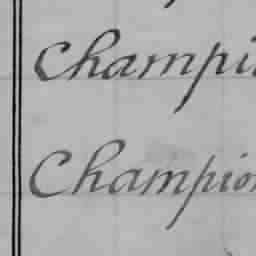 Champi
Champion